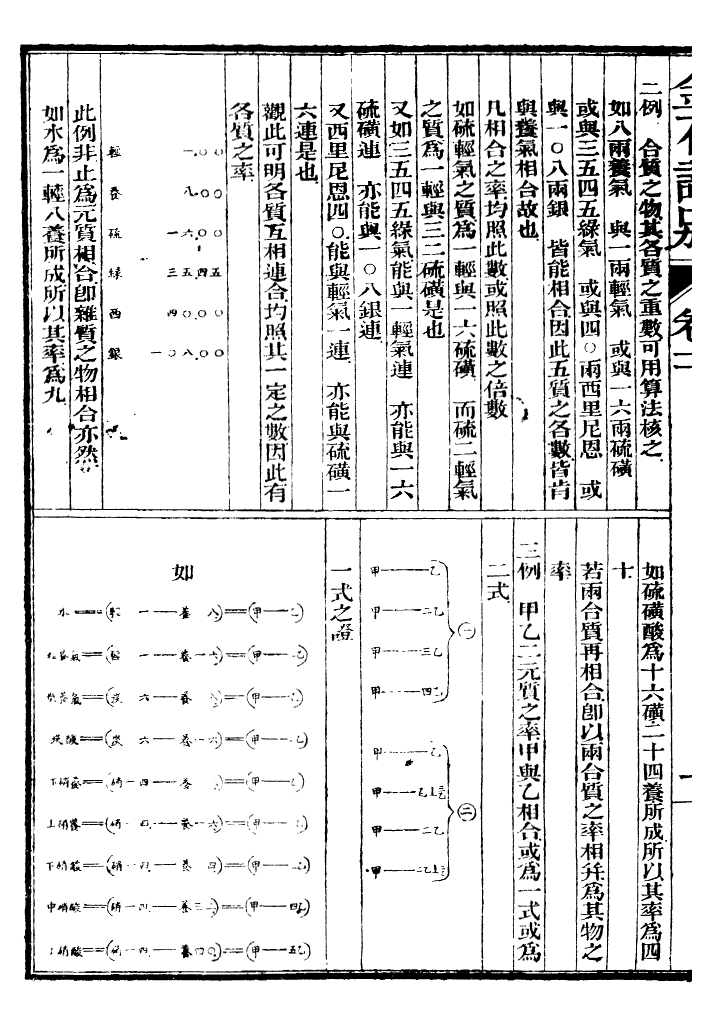 二例　合質之物其各質之重數可用算法核之
如八兩養氣　與一兩輕氣　或與一六兩硫磺
或與三五四五綠氣　或與四〇兩西里尼恩　或
與一〇八兩銀　皆能相合因此五質之各數皆肯
與養氣相合故也
凡相合之率均照此數或照此數之倍數
如硫輕氣之質爲一輕與一六硫磺　而硫二輕氣
之質爲一輕與三二硫磺是也
又如三五四五綠氣能與一輕氣連　亦能與一六
硫磺連　亦能與一〇八銀連
又西里尼恩四〇能與輕氣一連　亦能與硫磺一
六連是也
觀此可明各質互相連合均照其一定之數因此有
各質之率
輕　一.〇〇
養　八.〇〇
硫　一六.〇〇
綠　三五.四五
西　四〇.〇〇
銀　一〇八.〇〇
此例非止爲元質相合卽雜質之物相合亦然
如水爲一輕八養所成所以其率爲九
如硫磺酸爲十六磺二十四養所成所以其率爲四
十
若兩合質再相合卽以兩合質之率相幷爲其物之
率
三例　甲乙二元質之率甲與乙相合或爲一式或爲
二式
甲——乙
甲——二乙
甲——三乙
甲——四乙
㊀
甲——乙
甲——乙
甲——二乙
甲——二乙
㊁
一式之證
如
水＝(輕　一——養　八)＝(甲——乙)
養氣＝(輕　一——養一六)＝(甲——二乙)
炭養氣＝(炭　六——養　八)＝(甲——乙)
炭酸＝(炭　六——養一六)＝(甲——二乙)
下硝養＝(硝一四——養　八)＝(甲——乙)
上硝養＝(硝一四——養一六)＝(甲——二乙)
下硝酸＝(硝一四——養二四)＝(甲——三乙)
中硝酸＝(硝一四——養三二)＝(甲——四乙)
上硝酸＝(硝一四——養四〇)＝(甲——五乙)
卷一